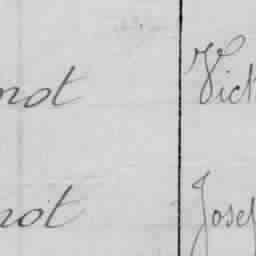 not Vict
not Josep